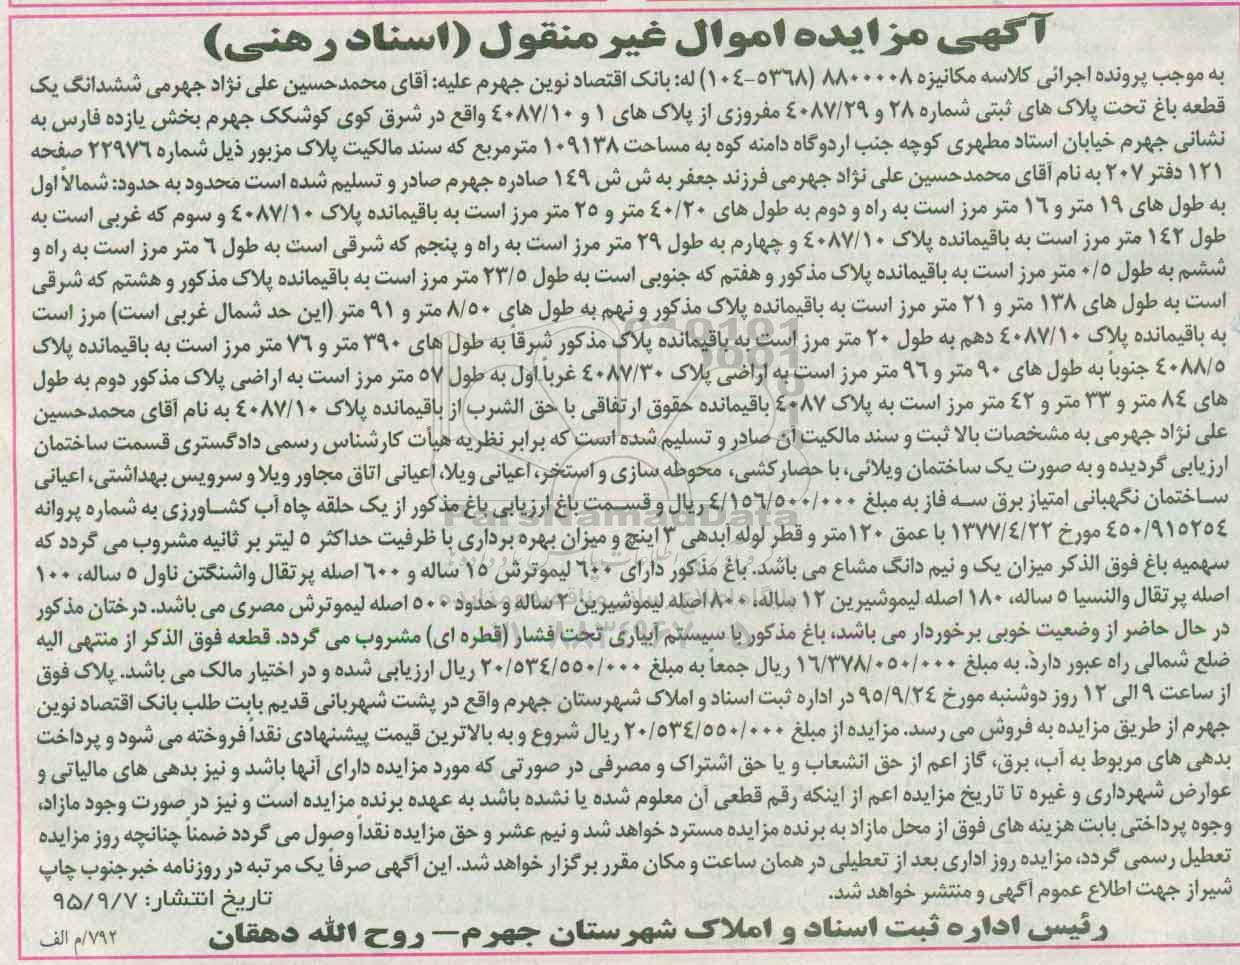 آگهی مزایده اموال غیر منقول (اسناد رهنی)
به موجب پرونده اجرائی کلاسه مکانیزه ۸۸۰۰۰۰۸ (۵۳۶۸-۱۰۴) له: بانک اقتصاد نوین جهرم علیه: آقای محمدحسین علی نژاد جهرمی ششدانگ یک
قطعه باغ تحت پلاک های ثبتی شماره ۲۸ و ۴۰۸۷/۲۹ مفروزی از پلاک های ۱ و ۴۰۸۷/۱۰ واقع در شرق کوی کوشکک جهرم بخش یازده فارس به
نشانی جهرم خیابان استاد مطهری کوچه جنب اردوگاه دامنه کوه به مساحت ۱۰۹۱۳۸ مترمربع که سند مالکیت پلاک مزبور ذیل شماره ۲۲۹۷۶ صفحه
۱۲۱ دفتر ۲۰۷ به نام آقای محمدحسین علی نژاد جهرمی فرزند جعفر به ش ش ۱۴۹ صادره جهرم صادر و تسلیم شده است محدود به حدود: شمالاً اول
به طول های ۱۹ متر و ۱۶ متر مرز است به راه و دوم به طول های ۴۰/۲۰ متر و ۲۵ متر مرز است به باقیمانده پلاک ۴۰۸۷/۱۰ و سوم که غربی است به
طول ۱۴۲ متر مرز است به باقیمانده پلاک ۴۰۸۷/۱۰ و چهارم به طول ۲۹ متر مرز است به راه و پنجم که شرقی است به طول ۶ متر مرز است به راه و
ششم به طول ۰/۵ متر مرز است به باقیمانده پلاک مذکور و هفتم که جنوبی است به طول ۲۳/۵ متر مرز است به باقیمانده پلاک مذکور و هشتم که شرقی
است به طول های ۱۳۸ متر و ۲۱ متر مرز است به باقیمانده پلاک مذکور و نهم به طول های ۸/۵۰ متر و ۹۱ متر (این حد شمال غربی است) مرز است
به باقیمانده پلاک ۴۰۸۷/۱۰ دهم به طول ۲۰ متر مرز است به باقیمانده پلاک مذکور شرقاً به طول های ۳۹۰ متر و ۷۶ متر مرز است به باقیمانده پلاک
۴۰۸۸/۵ جنوباً به طول های ۹۰ متر و ۹۶ متر مرز است به اراضی پلاک ۴۰۸۷/۳۰ غرباً اول به طول ۵۷ متر مرز است به اراضی پلاک مذکور دوم به طول
های ۸۴ متر و ۳۳ متر و ۴۲ متر مرز است به پلاک ۴۰۸۷ باقیمانده حقوق ارتفاقی با حق الشرب از باقیمانده پلاک ۴۰۸۷/۱۰ به نام آقای محمدحسین
علی نژاد جهرمی به مشخصات بالا ثبت و سند مالکیت آن صادر و تسلیم شده است که برابر نظریه هیأت کارشناس رسمی دادگستری قسمت ساختمان
ارزیابی گردیده و به صورت یک ساختمان ویلائی، با حصارکشی، محوطه سازی و استخر، اعیانی ویلا، اعیانی اتاق مجاور ویلا و سرویس بهداشتی، اعیانی
ساختمان نگهبانی امتیاز برق سه فاز به مبلغ ۴/۱۵۶/۵۰۰/۰۰۰ ریال و قسمت باغ ارزیابی باغ مذکور از یک حلقه چاه آب کشاورزی به شماره پروانه
۴۵۰/۹۱۵۲۵۴ مورخ ۱۳۷۷/۴/۲۲ با عمق ۱۲۰متر و قطر لوله آبدهی ۳ اینچ و میزان بهره برداری با ظرفیت حداکثر ۵ لیتر بر ثانیه مشروب می گردد که
سهمیه باغ فوق الذکر میزان یک و نیم دانگ مشاع می باشد. باغ مذکور دارای ۶۰۰ لیموترش ۱۵ ساله و ۶۰۰ اصله پرتقال واشنگتن ناول ۵ ساله، ۱۰۰
اصله پرتقال والنسیا ۵ ساله، ۱۸۰ اصله لیموشیرین ۱۲ ساله، ۸۰۰ اصله لیموشیرین ۲ ساله و حدود ۵۰۰ اصله لیموترش مصری می باشد. درختان مذکور
در حال حاضر از وضعیت خوبی برخوردار می باشد، باغ مذکور با سیستم آبیاری تحت فشار (قطره ای) مشروب می گردد. قطعه فوق الذکر از منتهی الیه
ضلع شمالی راه عبور دارد. به مبلغ ۱۶/۳۷۸/۰۵۰/۰۰۰ ریال جمعاً به مبلغ ۲۰/۵۳۴/۵۵۰/۰۰۰ ریال ارزیابی شده و در اختیار مالک می باشد. پلاک فوق
از ساعت ۹ الی ۱۲ روز دوشنبه مورخ ۹۵/۹/۲۴ در اداره ثبت اسناد و املاک شهرستان جهرم واقع در پشت شهربانی قدیم بابت طلب بانک اقتصاد نوین
جهرم از طریق مزایده به فروش می رسد. مزایده از مبلغ ۲۰/۵۳۴/۵۵۰/۰۰۰ ریال شروع و به بالاترین قیمت پیشنهادی نقداً فروخته می شود و پرداخت
بدهی های مربوط به آب، برق، گاز اعم از حق انشعاب و یا حق اشتراک و مصرفی در صورتی که مورد مزایده دارای آنها باشد و نیز بدهی های مالیاتی و
عوارض شهرداری و غیره تا تاریخ مزایده اعم از اینکه رقم قطعی آن معلوم شده یا نشده باشد به عهده برنده مزایده است و نیز در صورت وجود مازاد،
وجوه پرداختی بابت هزینه های فوق از محل مازاد به برنده مزایده مسترد خواهد شد و نیم عشر و حق مزایده نقداً وصول می گردد ضمناً چنانچه روز مزایده
تعطیل رسمی گردد، مزایده روز اداری بعد از تعطیلی در همان ساعت و مکان مقرر برگزار خواهد شد. این آگهی صرفاً یک مرتبه در روزنامه خبرجنوب چاپ
شیراز جهت اطلاع عموم آگهی و منتشر خواهد شد.
تاریخ انتشار: ۹۵/۹/۷
رئیس اداره ثبت اسناد و املاک شهرستان جهرم – روح الله دهقان
۷۹۲/م الف
ParsNamadData